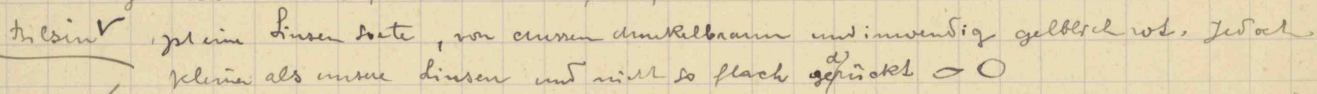 ist eine Linsen Sorte, von aussen dunkelbraun und inwendig gelblich rot. Jedoch
kleiner als unsere Linsen und nicht so flach gedrückt